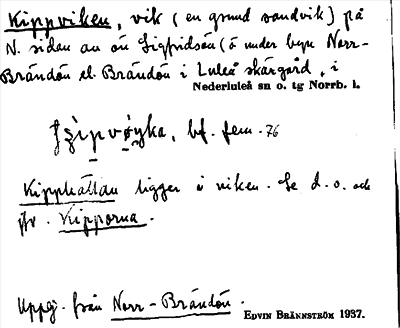 Kippviken, vik (en grund sandvik) på
N. sidan av ön Sigfridsön (ö under byn Norr-
Brändön el. Brändön i Luleå skärgård, i
Nederluleå sn o. tg Norrb. l.
bf. fem. 76
Kipphällan ligger i viken. Se d. o. och
jfr. Kipporna.
Uppg. från Norr-Brändön.
EDVIN BRÄNNSTRÖM 1937.